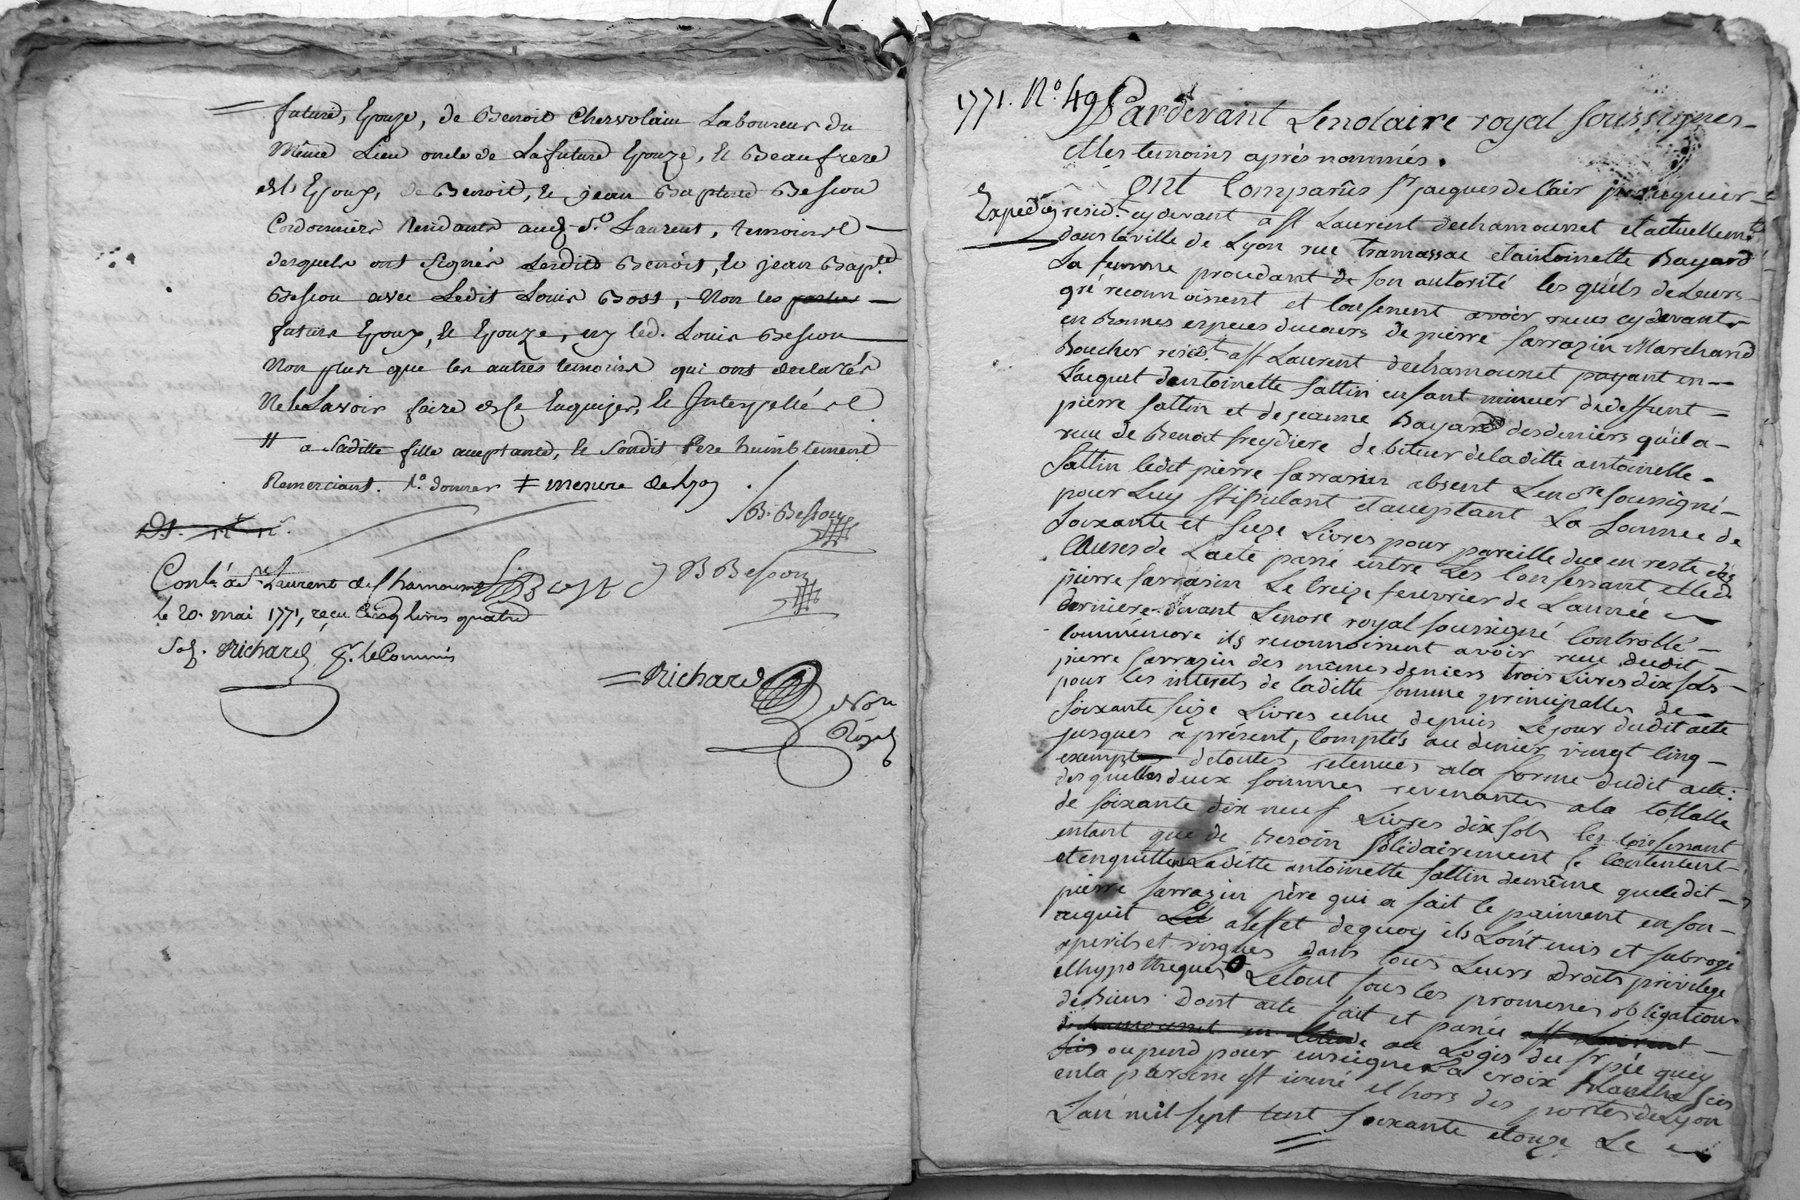 future, Epouze, de Benoit Chervolain Laboureur du
Même Lieu oncle de Lafuture Epouze, de Beaufrere
de Benoit, de jean Baptiste Besson
Cordonniers Residants aud. St. Laurent, temoins
desquels ont Signés Lesdits Benoit, de jean Bapte
Besson avec Ledit Louis Bost, Non les parties
futurs Epoux, de Epouze, ny led. Louis Besson
Non plus que les autres temoins qui ont declarés
Ne le Savoir faire de ce Enquis, de Interpellés
a Saditte fille acceptante, de Sondit Pere humblement
Remerciant. donner ≠ mesure de Lyon
JB. Besson
Conlé. a St Laurent de Chamousset Bost JB Besson
le 20. mai 1771, reçu Cinq livres quatre
Sols. Richard pr. le Commis
Richard
Nore
Royal
1771. No. 49
Pardevant Lenotaire royal soussignés
et les temoins après nommés.
Expedié
Ont Comparûs sr jacques declair perruquier
resid.t cy devant a St Laurent dechamousset et actuellemt
dans la ville de Lyon rue tramassac et antoinette Bayard
La femme procedant de son autorité les quels de Leurs
gré reconnoissent et Confessent avoir reçus cy devant
en Bonnes especes ducours de pierre Sarrazin Marchand
Boucher resid.t a St Laurent dechamousset payant en
L'acquit d'antoinette fattin enfant mineur de deffunt
pierre fattin et de jeanne Bayard des deniers qu'il a
reçu de Benoit freydiere debiteur de laditte antoinette
fattin ledit pierre Sarrazin absent Lenore soussigné
pour Luy stipulant et acceptant La Somme de
Soixante et Seize Livres pour pareille due en reste des
Causes de L'acte passé entre Les Confessant et led.
pierre Sarrasin Le treize fevrier de L'année
derniere devant Lenore royal soussigné Controllé
Comm'encore ils reconnoissent avoir reçu dudit
pierre Sarrazin des mêmes deniers trois Livres dix sols
pour les interets de laditte somme principalle de
Soixante seize Livres echue depuis Le jour dudit acte
jusques a présent, Comptés au denier vingt Cinq
exempt de toutes retenues a la forme dudit acte:
des quelles deux sommes revenantes a la tottalle
de soixante dix neuf Livres dix sols les Confessant
entant que de Besoin Solidairement se Contentent
et en quittent Laditte antoinette fattin de même queledit
pierre Sarrazin père qui a fait le paiment en son
acquit a l'effet dequoy ils L'ont mis et subrogé
a perils et risques dans tous Leurs Droits privilege
et hypotheques Letout sous les promesses obligations
de Biens Dont acte fait et passé a St Laurent
dechamousset en l'etude au Logis du sr pié quy
ou pend pour enseigne La croix Blanche Sis
en la paroisse St irené et hors des portes de Lyon
L'an mil sept cent soixante et onze Le